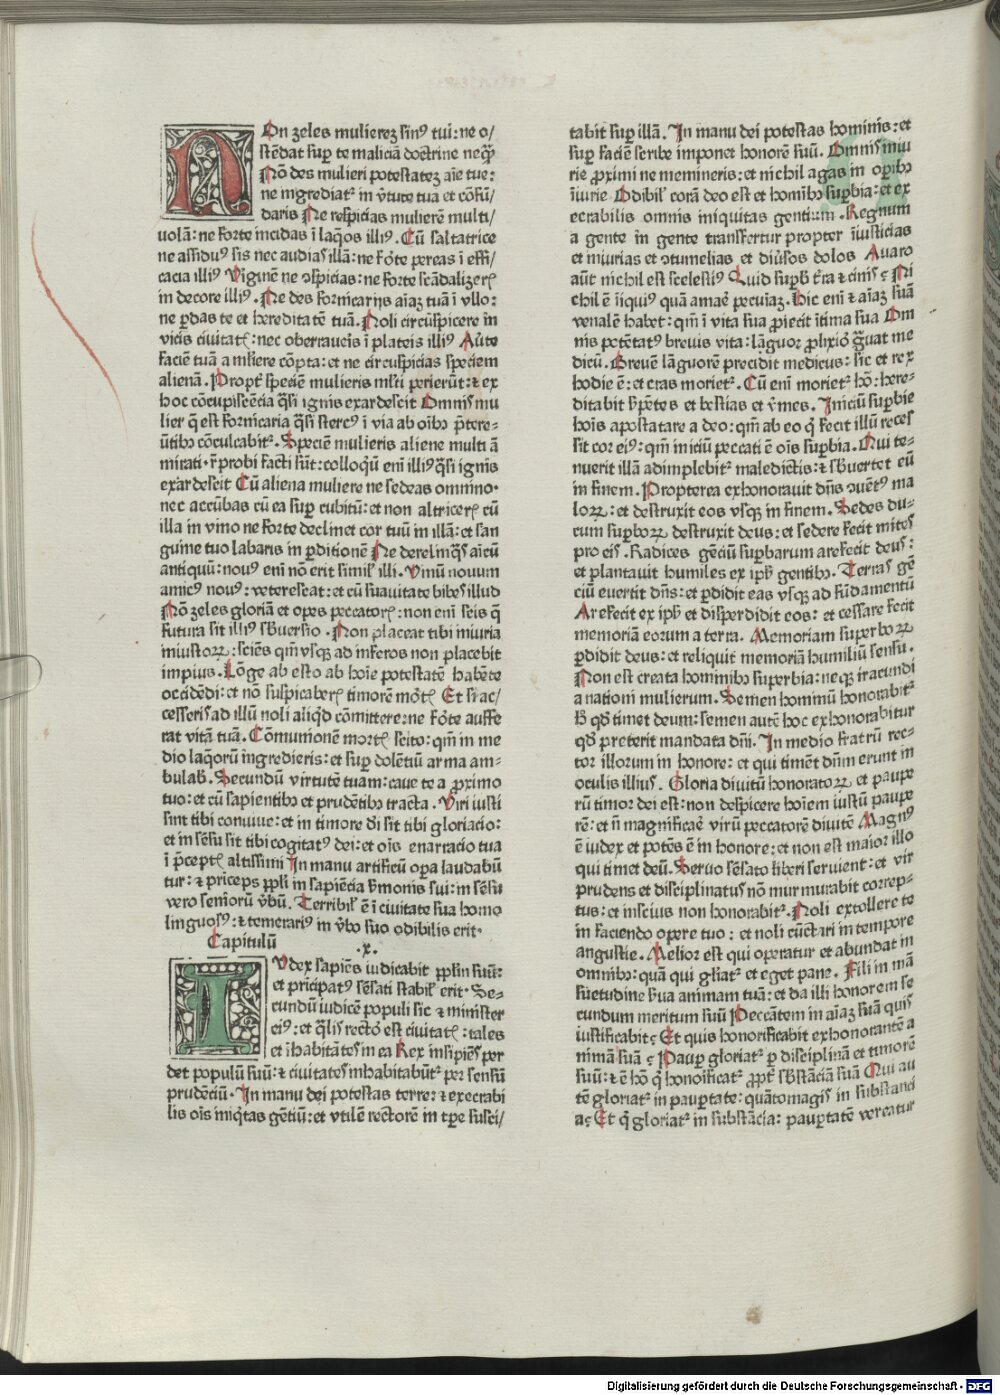 NOn zeles mulierez sinꝰ tui: ne o/
stēdat suꝑ te maliciā doctrine neqꝫ
Nō des mulieri potestatez aīe tue:
ne ingrediatᷣ in v̄tute tua et cōfū/
daris Ne respicias mulierē multi/
uolā: ne forte incidas ī laq̄os illiꝰ. Cū saltatrice
ne assiduꝰ sis nec audias illā: ne fōte pereas ī effi/
cacia illiꝰ Virginē ne ꝯspicias: ne forte scādalizerꝭ
in decore illiꝰ. Ne des fornicarijs aīaꝫ tuā ī vllo:
ne ꝑdas te et hereditatē tuā. Noli circūspicere in
vicis ciuitatꝭ: nec oberraueis ī plateis illiꝰ Auͤte
faciē tuā a mliere cōpta: et ne circuspicias speciem
alienā. Propt̄ speciē mulieris mlti perierūt: ⁊ ex
hoc cōcupiscēcia q̄si ignis exardescit Omnis mu
lier q̄ est fornicaria q̄si stercꝰ ī via ab oībꝫ p̄tere-
ūtibꝫ cōculcabitᷣ. Speciē mulieris aliene multi ā
mirati. r̄probi facti sūt: colloq̄ū enī illiꝰ q̄si ignis
exardescit Cū aliena muliere ne sedeas omnino.
nec accūbas cū ea suꝑ cubitū: et non altricerꝭ cū
illa in vino ne forte declinet cor tuū in illā: et san
guine tuo labaris in ꝑditionē Ne derelinq̄s aīcū
antiquū: nouꝰ enī nō erit similꝭ illi. Vinū nouum
amicꝰ nouꝰ: veterescat: et cū suauitate bibes illud
Nō zeles gloriā et opes peccatorꝭ: non enī scis q̄
futura sit illiꝰ sb̄uersio. Non placeat tibi iniuria
iniustoꝝ: sciēs qm̄ vsqꝫ ad inferos non placebit
impius. Lōge ab esto ab hoīe potestatē habēte
occidēdi: et nō suspicaberꝭ timorē mōtꝭ Et si ac/
cesseris ad illū noli aliqͥd cōmittere: ne fōte auffe
rat vitā tuā. Cōmunionē mortꝭ scito: qm̄ in me
dio laq̄orū ingredieris: et suꝑ dolētiū arma am-
bulabꝭ. Secundū virtutē tuam: caue te a ꝓximo
tuo: et cū sapientibꝫ et prudētibꝫ tracta. Viri iusti
sint tibi conuiue: et in timore dī sit tibi gloriacio:
et in sēsu sit tibi cogitatꝰ dei: et oīs enarracio tua
ī p̄ceptꝭ altissimi In manu artificū opa laudabū
tur: ⁊ priceps ppl̄i in sapiēcia s̄monis sui: in sēsu
vero seniorū v̄bū. Terribilꝭ ē ī ciuitate sua homo
linguosꝰ: ⁊ temerariꝰ in v̄bo suo odibilis erit.
Capitulū .x.
IVdex sapiēs iudicabit ppl̄m suū:
et pricipatꝰ sēsati stabilꝭ erit. Se-
cundū iudicē populi sic ⁊ minister
eiꝰ: et q̄lis rectō est ciuitatꝭ: tales
et īhabitātes in ea Rex insipiēs per
det populū suū: ⁊ ciuitates inhabitabūtᷣ per sensū
prudēciū. In manu dei potestas terre: ⁊ execrabi
lis oīs iniq̄tas gētiū: et vtilē rectorē in tp̄e susci/
tabit suꝑ illā. In manu dei potestas hominis: et
suꝑ faciē scribe imponet honorē suū. Omnis iniu
rie ꝓximi ne memineris: et nichil agas in oꝑibꝫ
iniurie Odibilꝭ corā deo est et homībꝫ suꝑbia: et ex
ecrabilis omnis iniquitas gentium. Regnum
a gente in gente transfertur propter iniusticias
et iniurias et ꝯtumelias et diūsos dolos Auaro
aūt nichil est scelestiꝰ Quid suꝑb t̄ra ⁊ cinis ꝫ Ni
chil ē iīquiꝰ quā amaē pecuiaꝫ. Hic enī ⁊ aīaꝫ suā
venalē habet: qm̄ ī vita sua ꝓiecit ītima sua Om
nis potētatꝰ breuis vita: lāguoꝛ ꝓlixiō ḡuat me
dicū. Breuē lāguorē precidit medicus: sic et rex
hodie ē: et cras morietᷣ. Cū enī morietᷣ hō: here-
ditabit s̄pētes et bestias et v̄mes. Iniciū suꝑbie
hoīs apostatare a deo: qm̄ ab eo q̄ fecit illū reces
sit cor eiꝰ: qm̄ iniciū peccati ē oīs suꝑbia. Qui te-
nuerit illā adimplebitᷣ maledictis: ⁊ sb̄uertet eū
in finem. Propterea exhonorauit dn̄s ꝯuētꝰ ma
loꝝ: et destruxit eos vsqꝫ in finem. Sedes du-
cum suꝑboꝝ destruxit deus: et sedere fecit mites
pro eis. Radices gēciū suꝑbarum arefecit deus:
et plantauit humiles ex ip̄s gentibꝫ. Terras gē
ciū euertit dn̄s: et ꝑdidit eas vsqꝫ ad fūdamentū
Arefecit ex ip̄s et disperdidit eos: et cessare fecit
memoriā eorum a terra. Memoriam superboꝝ
ꝑdidit deus: et reliquit memoriā humiliū sensu.
Non est creata hominibꝫ superbia: neqꝫ iracundi
a nationi mulierum. Semen hominū honorabitᷣ
h̄ qd̄ timet deum: semen autē hoc exhonorabitur
qd̄ preterit mandata dn̄i. In medio fratrū rec-
tor illorum in honore: et qui timēt dn̄m erunt in
oculis illius. Gloria diuitū honoratoꝝ et paupe
rū timor dei est: non despicere hoīem iustū paupe
rē: et n̄ magnificaē virū peccatorē diuitē Magnꝰ
ē iudex et potēs ē in honore: et non est maior illo
qui timet deū. Seruo sēsato liberi seruient: et vir
prudens et disciplinatus nō murmurabit correp-
tus: et inscius non honorabitᷣ. Noli extollere te
in faciendo opere tuo: et noli cūctari in tempore
angustie. Melior est qui operatur et abundat in
omnibꝫ: quā qui gl̄iatᷣ et eget pane. Fili in mā
suetudine s̄ua animam tuā: et da illi honorem se
cundum meritum suū Peccātem in aīaꝫ suā quis
iustificabitꝫ Et quis honorificabit exhonorantē a
nimā suā ꝫ Pauꝑ gloriatᷣ ꝑ disciplinā et timorē
suū: ⁊ ē hō q̄ honoificatᷣ ꝓpt̄ sb̄stāciā suā Qui au
tē gloriatᷣ in pauꝑtate: quātomagis in substanci
aꝫ Et q̄ gloriatᷣ in substācia: pauꝑtatē vereatur
Digitalisierung gefördert durch die Deutsche Forschungsgemeinschaft - DFG